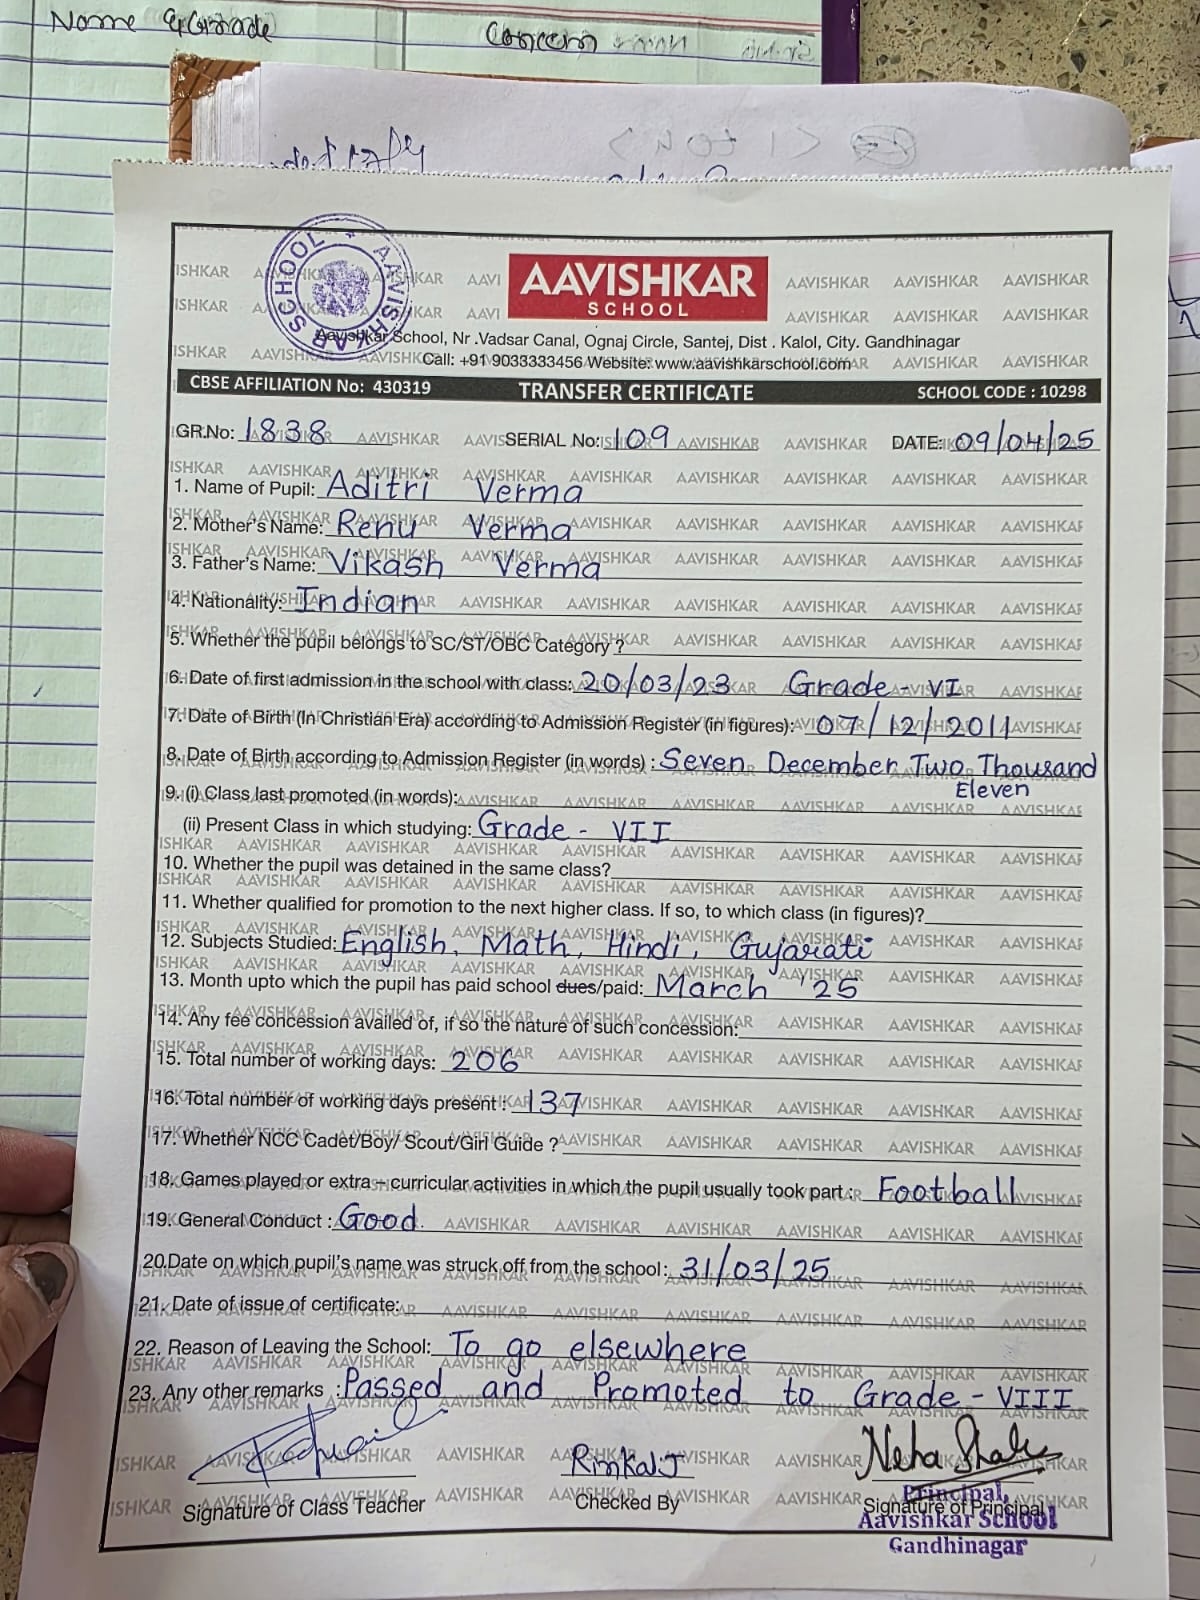 Name & Grade Concern
SCHOOL * AAVISHKAR
AAVISHKAR
SCHOOL
Aavishkar School, Nr .Vadsar Canal, Ognaj Circle, Santej, Dist . Kalol, City. Gandhinagar
Call: +91 9033333456 Website: www.aavishkarschool.com
CBSE AFFILIATION No: 430319 TRANSFER CERTIFICATE SCHOOL CODE : 10298
GR.No: 1838 SERIAL No: 109 DATE: 09/04/25
1. Name of Pupil: Aditri Verma
2. Mother's Name: Renu Verma
3. Father's Name: Vikash Verma
4. Nationality: Indian
5. Whether the pupil belongs to SC/ST/OBC Category ?
6. Date of first admission in the school with class: 20/03/23 Grade - VI
7. Date of Birth (In Christian Era) according to Admission Register (in figures): 07/12/2011
8. Date of Birth according to Admission Register (in words) : Seven December Two Thousand
Eleven
9. (i) Class last promoted (in words):
(ii) Present Class in which studying: Grade - VII
10. Whether the pupil was detained in the same class?
11. Whether qualified for promotion to the next higher class. If so, to which class (in figures)?
12. Subjects Studied: English, Math, Hindi, Gujarati
13. Month upto which the pupil has paid school dues/paid: March '25
14. Any fee concession availed of, if so the nature of such concession:
15. Total number of working days: 206
16. Total number of working days present : 137
17. Whether NCC Cadet/Boy/ Scout/Girl Guide ?
18. Games played or extra – curricular activities in which the pupil usually took part : Football
19. General Conduct : Good
20.Date on which pupil's name was struck off from the school: 31/03/25
21. Date of issue of certificate:
22. Reason of Leaving the School: To go elsewhere
23. Any other remarks : Passed and Promoted to Grade - VIII
Rinkal.J Neha Shah
Signature of Class Teacher Checked By Signature of Principal
Principal,
Aavishkar School
Gandhinagar